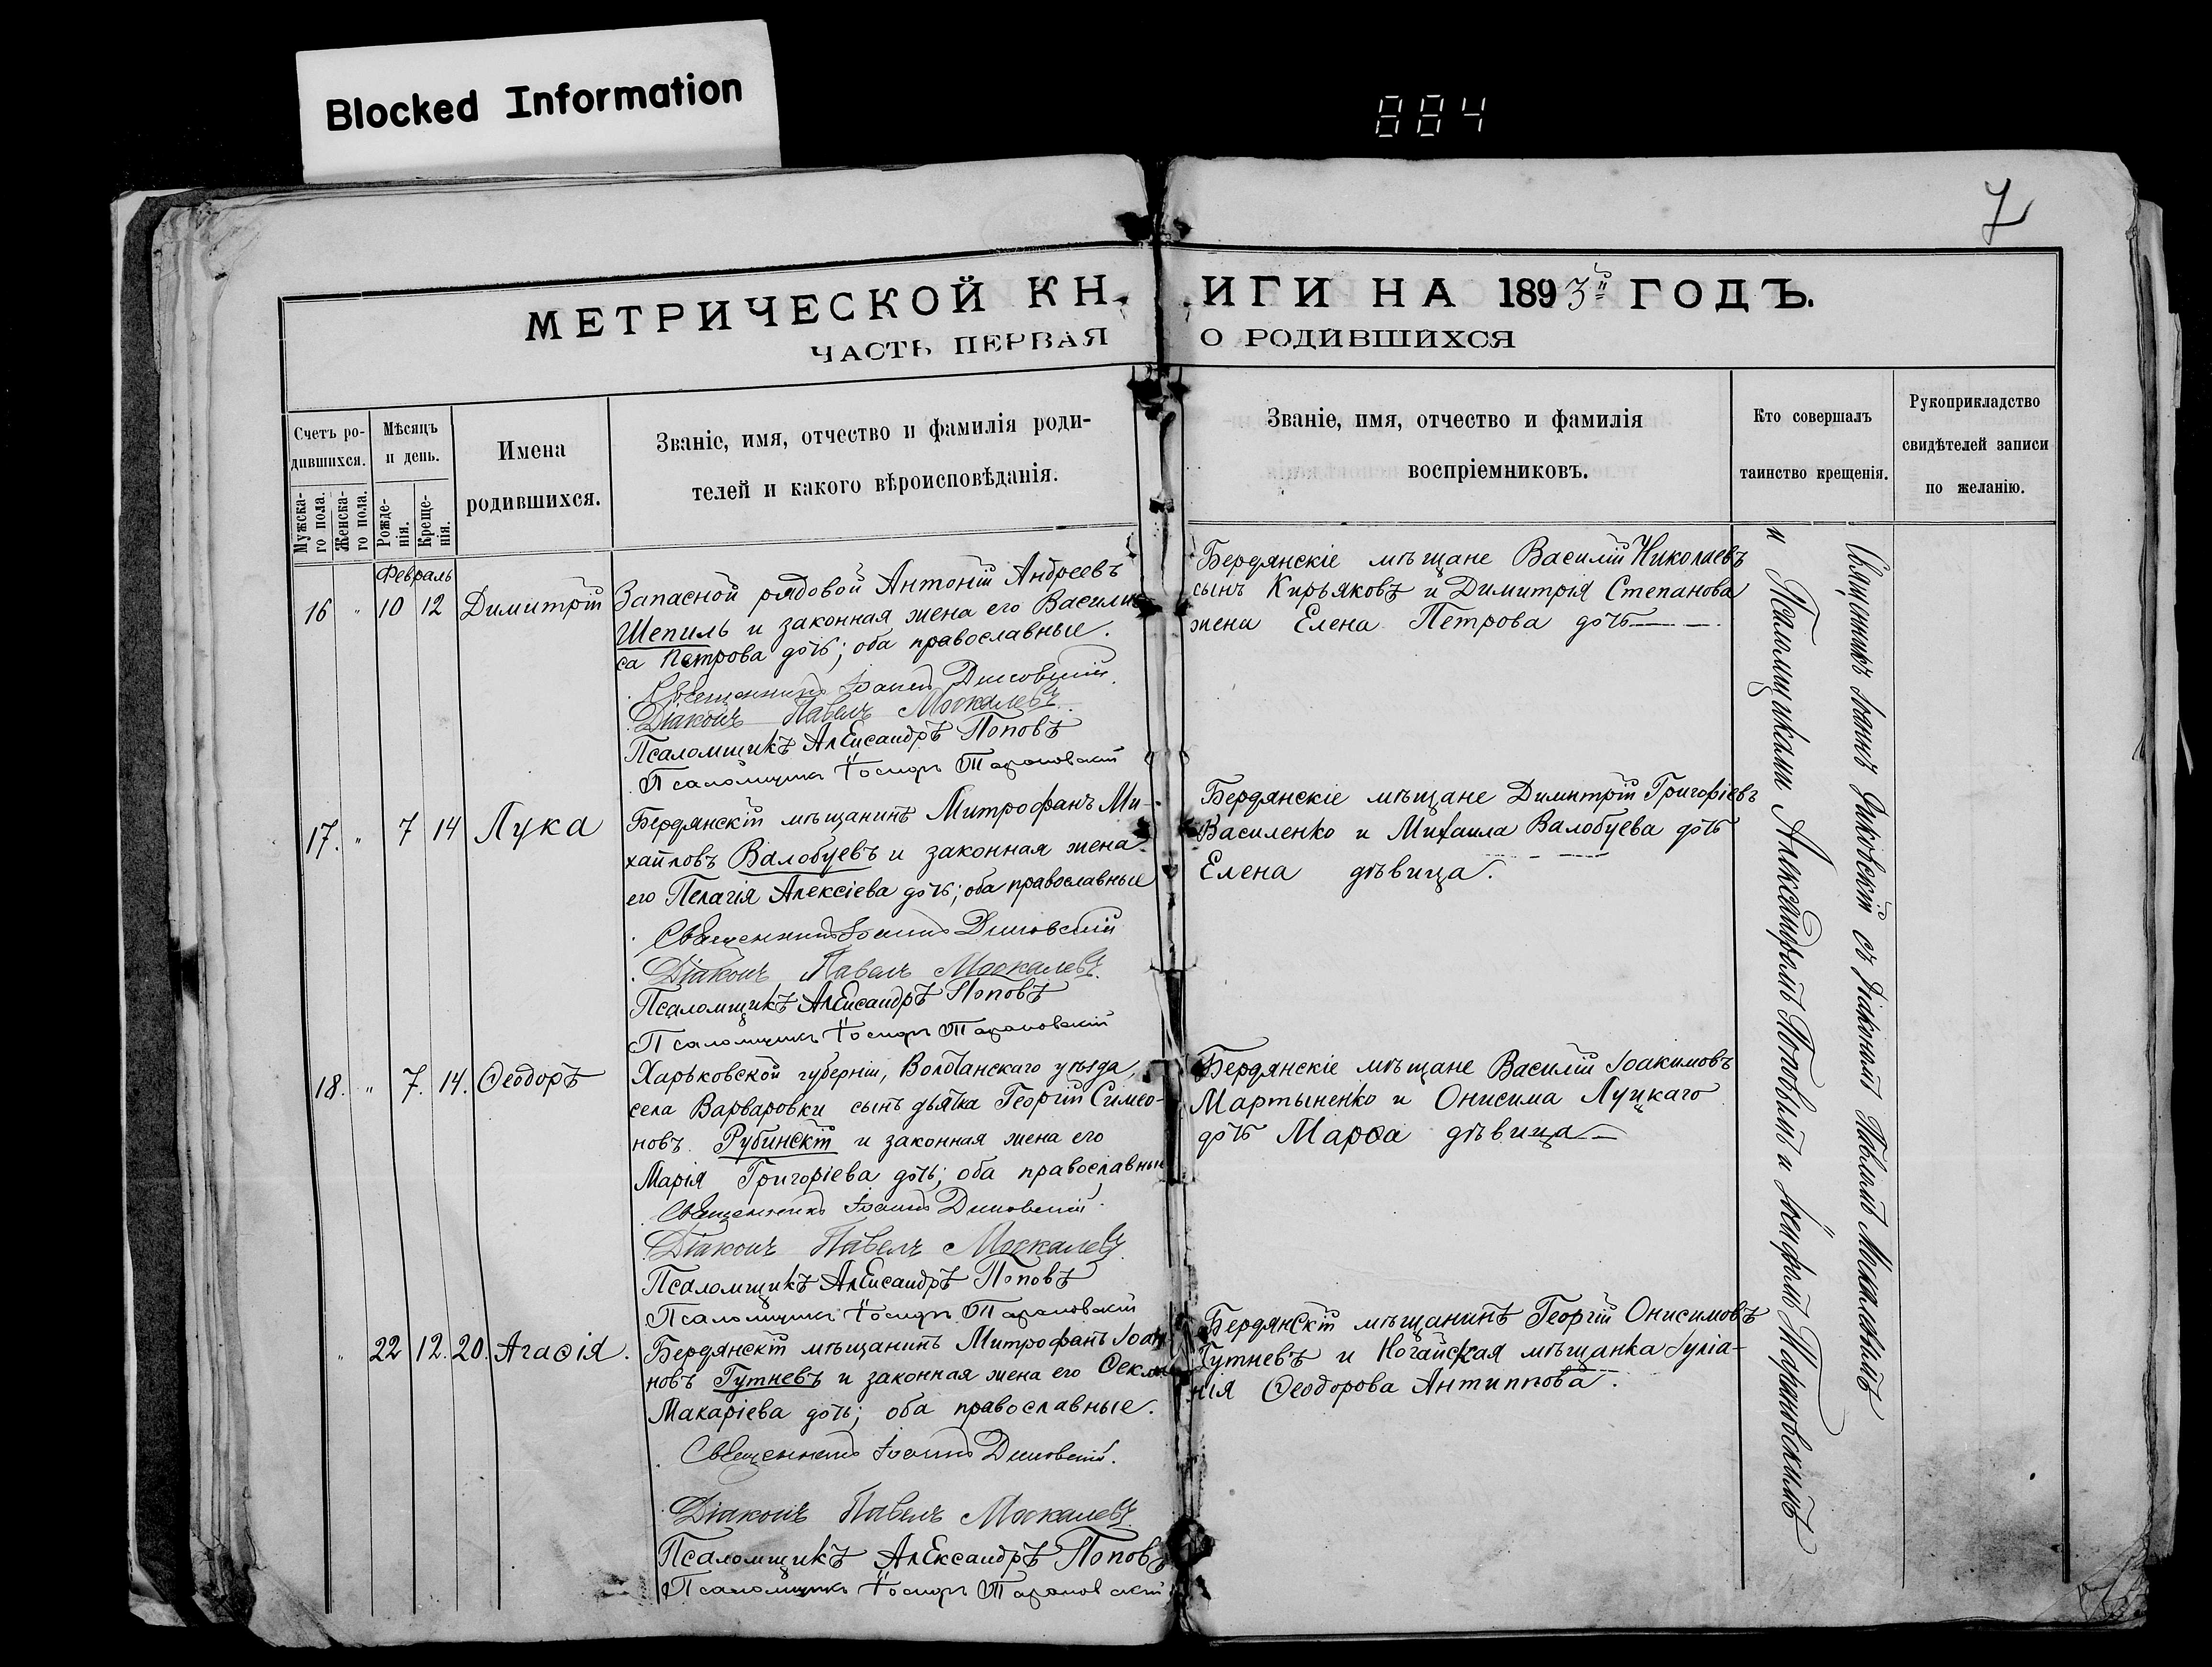 Blocked Information
884
7
МЕТРИЧЕСКОЙ КНИГИ НА 1893й ГОДЪ.
ЧАСТЬ ПЕРВАЯ О РОДИВШИХСЯ
Счетъ ро-
дившихся.
Мужска-
го пола.
Женска-
го пола.
Мѣсяцъ
и день.
Рожде-
нія.
Креще-
нія.
Имена
родившихся.
Званіе, имя, отчество и фамилія роди-
телей и какого вѣроисповѣданія.
Званіе, имя, отчество и фамилія
воспріемниковъ.
Кто совершалъ
таинство крещенія.
Рукоприкладство
свидѣтелей записи
по желанію.
Февраль
16 " 10 12 Димитрій
Запасной рядовой Антоній Андреевъ
Шепиль и законная жена его Васили-
са Петрова дочь; оба православные.
Священникъ Іоаннъ
Діаконъ Павелъ Москалевъ
Псаломщикъ Александръ Поповъ
Псаломщикъ Тарановскій
Бердянскіе мѣщане Василій Николаевъ
сынъ Кирьяковъ и Димитрія Степанова
жена Елена Петрова дочь
17. " 7 14 Лука
Бердянскій мѣщанинъ Митрофанъ Ми-
хайловъ Валобуевъ и законная жена
его Пелагія Алексіева дочь; оба православные
Священникъ Іоаннъ
Діаконъ Павелъ Москалевъ
Псаломщикъ Александръ Поповъ
Псаломщикъ Тарановскій
Бердянскіе мѣщане Димитрій Григоріевъ
Василенко и Михаила Валобуева дочь
Елена дѣвица.
18. " 7. 14. Ѳеодоръ
Харьковской губерніи, Волчанскаго уѣзда,
села Варваровки сынъ дьячка Георгій Симео-
новъ Рубинскій и законная жена его
Марія Григоріева дочь; оба православные
Священникъ Іоаннъ
Діаконъ Павелъ Москалевъ
Псаломщикъ Александръ Поповъ
Псаломщикъ Тарановскій
Бердянскіе мѣщане Василій Іоакимовъ
Мартыненко и Онисима Луцкаго
дочь Марѳа дѣвица
" 22 12. 20. Агаѳія.
Бердянскій мѣщанинъ Митрофанъ Іоан-
новъ Гутневъ и законная жена его Ѳекла
Макаріева дочь; оба православные.
Священникъ Іоаннъ
Діаконъ Павелъ Москалевъ
Псаломщикъ Александръ Поповъ
Псаломщикъ Тарановскій
Бердянскій мѣщанинъ Георгій Онисимовъ
Гутневъ и Ногайская мѣщанка Іуліа-
нія Ѳеодорова Антиппова.
Священникъ Іоаннъ съ Діакономъ Павломъ Москалевымъ
и Псаломщиками Александромъ Поповымъ и Тарановскимъ